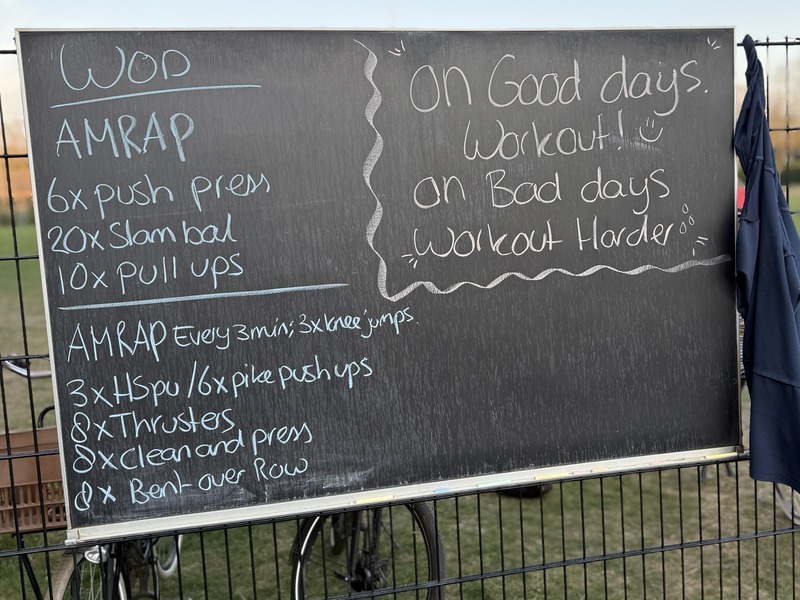 WOD
AMRAP
6x push press
20x Slam ball
10x pull ups
AMRAP Every 3 min; 3x knee jumps.
3x HSpu / 6x pike push ups
8x Thrusters
8x Clean and press
8x Bent over Row
On Good days.
Workout!
on Bad days
Workout Harder